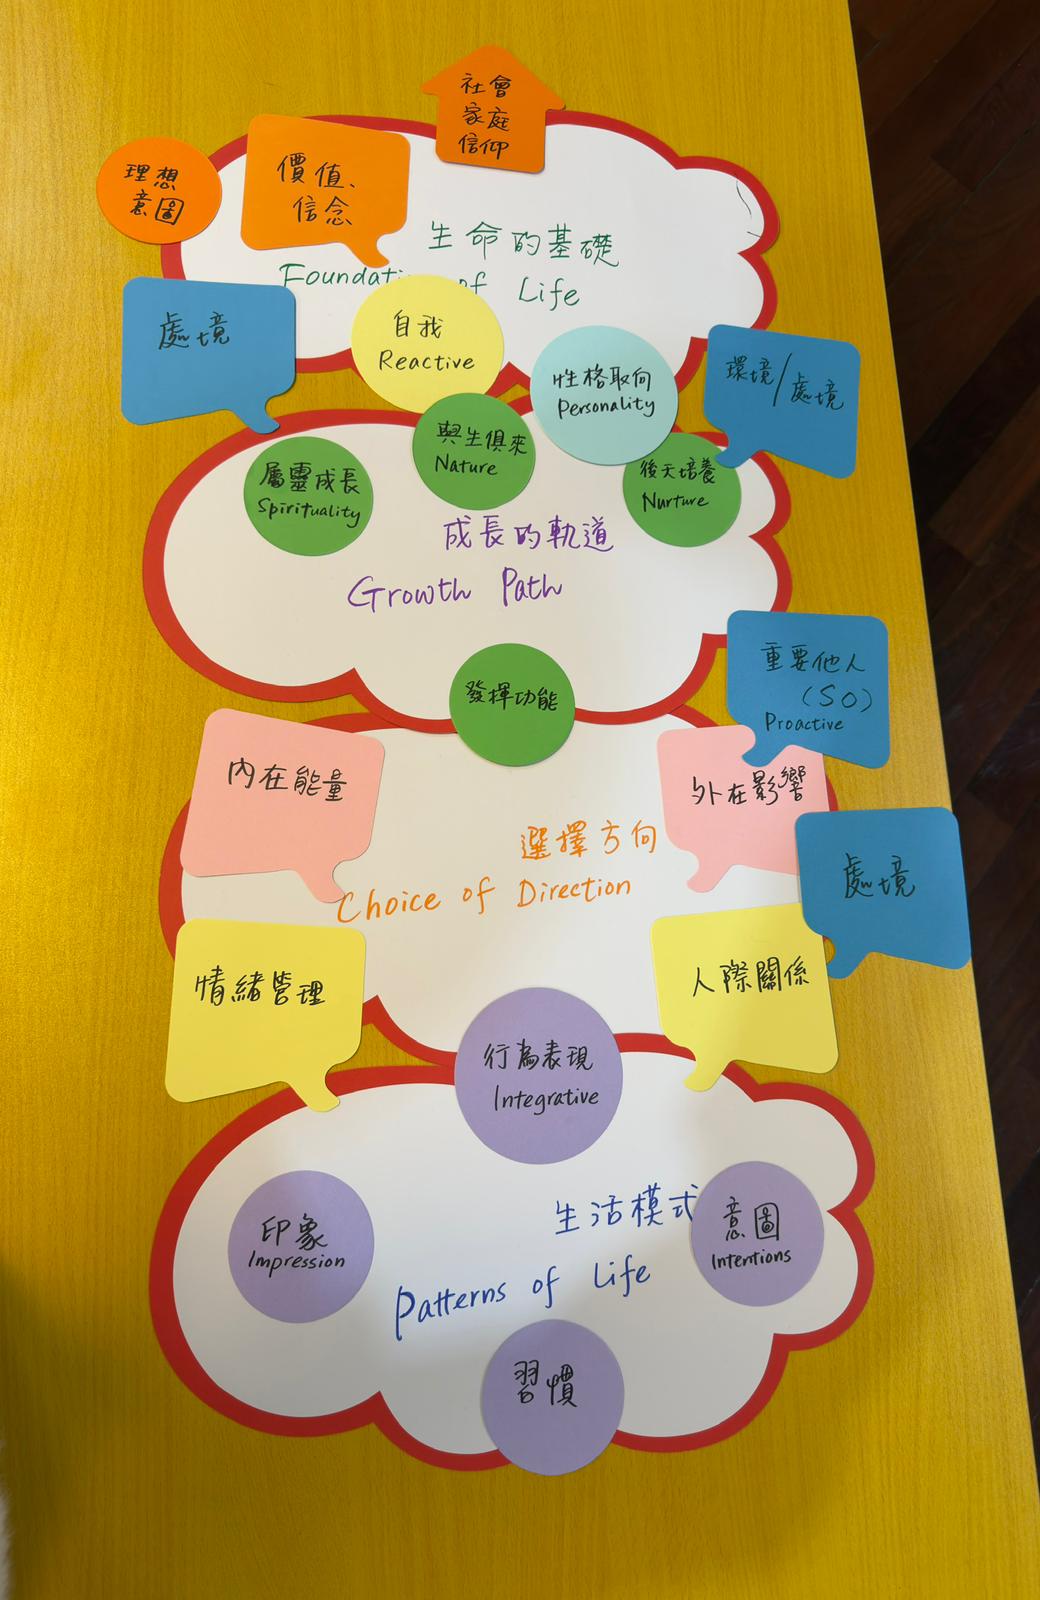 社會
家庭
信仰
理想
意圖
價值、
信念
生命的基礎
Foundati of Life
處境
自我
Reactive
性格取向
Personality
環境/處境
與生俱來
Nature
屬靈成長
Spirituality
後天培養
Nurture
成長的軌道
Growth Path
發揮功能
重要他人
(SO)
Proactive
內在能量
外在影響
選擇方向
Choice of Direction
處境
情緒管理
人際關係
行為表現
Integrative
印象
Impression
生活模式
Patterns of Life
意圖
Intentions
習慣